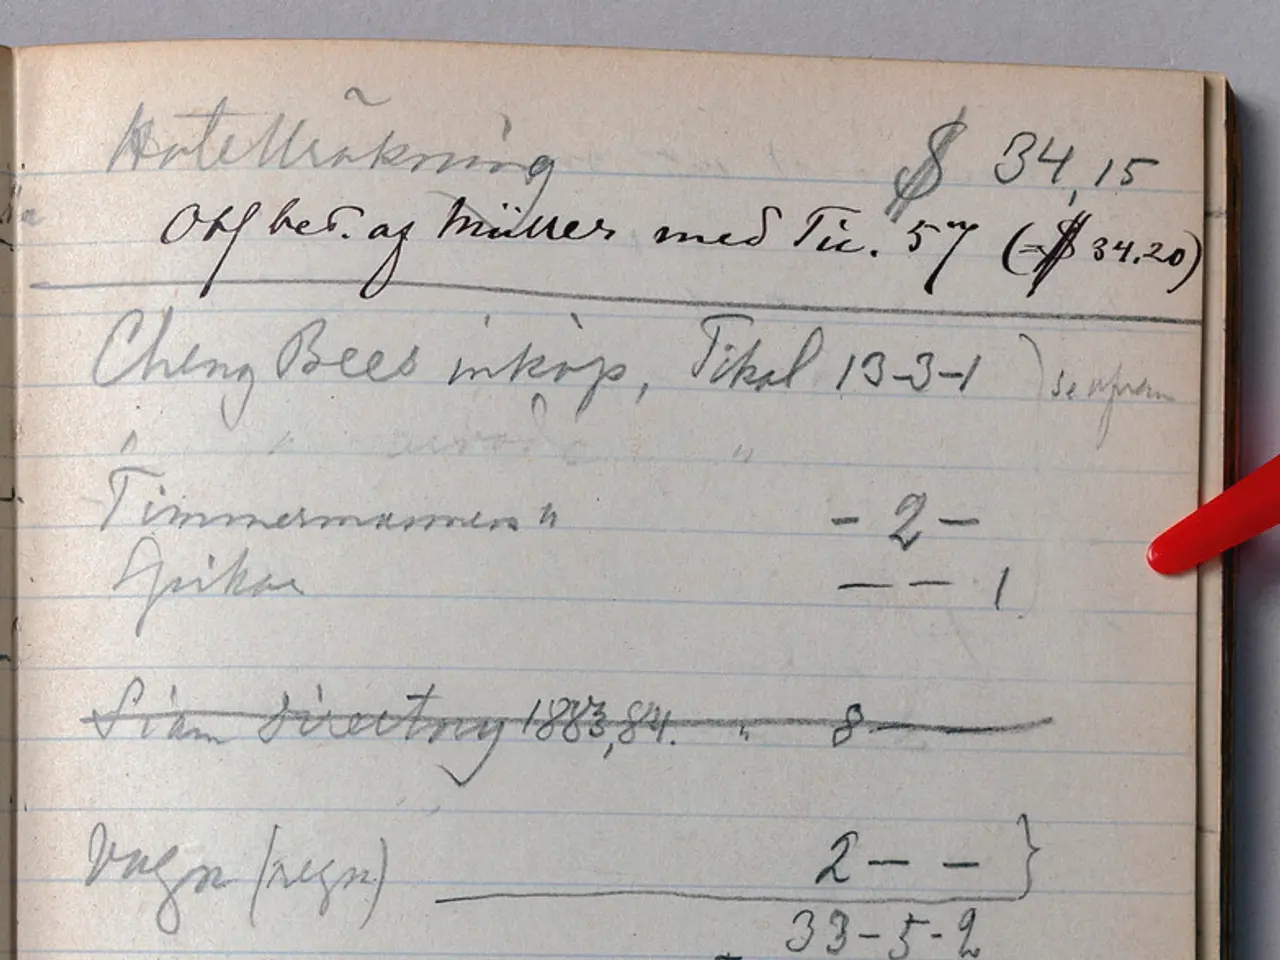 Hotellräkning $ 34,15
bet. af Müller med Tic. 57 (=$ 34.20)
Cheng Bees inköp, Tikal 13-3-1
" " "
Timmermannens " - 2 -
Spikar — — 1
Siam Directory 1883,84. " 8 —
Vagn (regn) 2 — —
33-5-2